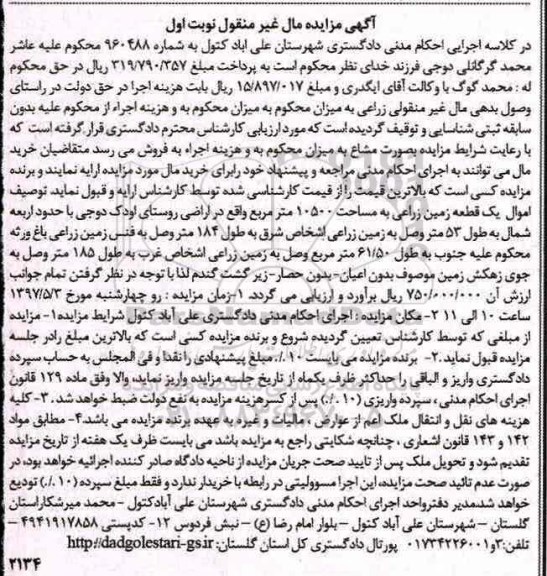 آگهی مزایده مال غیر منقول نوبت اول
در کلاسه اجرایی احکام مدنی دادگستری شهرستان علی اباد کتول به شماره ۹۶۰۴۸۸ محکوم علیه عاشر
محمد گرگانلی دوجی فرزند خدای نظر محکوم است به پرداخت مبلغ ۳۱۹/۷۹۰/۳۵۷ ریال در حق محکوم
له : محمد گوگ با وکالت آقای ایگدری و مبلغ ۱۵/۸۹۷/۰۱۷ ریال بابت هزینه اجرا در حق دولت در راستای
وصول بدهی مال غیر منقولی زراعی به میزان محکوم به میزان محکوم به و هزینه اجراء از محکوم علیه بدون
سابقه ثبتی شناسایی و توقیف گردیده است که مورد ارزیابی کارشناس محترم دادگستری قرار گرفته است که
با رعایت شرایط مزایده بصورت مشاع به میزان محکوم به و هزینه اجراء به فروش می رسد متقاضیان خرید
مال می توانند به اجرای احکام مدنی مراجعه و پیشنهاد خود رابرای خرید مال مورد مزایده ارایه نمایند و برنده
مزایده کسی است که بالاترین قیمت را از قیمت کارشناسی شده توسط کارشناس ارایه و قبول نماید. توصیف
اموال یک قطعه زمین زراعی به مساحت ۱۰۵۰۰ متر مربع واقع در اراضی روستای اودک دوجی با حدود اربعه
شمال به طول ۵۳ متر وصل به زمین زراعی اشخاص شرق به طول ۱۸۴ متر وصل به فنس زمین زراعی باغ ورثه
محکوم علیه جنوب به طول ۶۱/۵۰ متر مربع وصل به زمین زراعی اشخاص غرب به طول ۱۸۵ متر وصل به
جوی زهکش زمین موصوف بدون اعیان-بدون حصار-زیر گشت گندم لذا با توجه در نظر گرفتن تمام جوانب
ارزش آن ۷۵۰/۰۰۰/۰۰۰ ریال برآورد و ارزیابی می گردد. ۱-زمان مزایده : رو چهارشنبه مورخ ۱۳۹۷/۵/۳
ساعت ۱۰ الی ۱۱ ۲- مکان مزایده : اجرای احکام مدنی دادگستری علی آباد کتول شرایط مزایده۱- مزایده
از مبلغی که توسط کارشناس تعیین گردیده شروع و برنده مزایده کسی است که بالاترین مبلغ رادر جلسه
مزایده قبول نماید.۲- برنده مزایده می بایست ۱۰٪. مبلغ پیشنهادی را نقدا و فی المجلس به حساب سپرده
دادگستری واریز و الباقی را حداکثر ظرف یکماه از تاریخ جلسه مزایده واریز نماید، والا وفق ماده ۱۲۹ قانون
اجرای احکام مدنی ، سپرده واریزی (۱۰٪.) پس از کسرهزینه مزایده به نفع دولت ضبط خواهد شد. ۳- کلیه
هزینه های نقل و انتقال ملک اعم از عوارض ، مالیات و غیره به عهده برنده مزایده می باشد.۴- مطابق مواد
۱۴۲ و ۱۴۳ قانون اشعاری ، چنانچه شکایتی راجع به مزایده باشد می بایست ظرف یک هفته از تاریخ مزایده
تقدیم شود و تحویل ملک پس از تایید صحت جریان مزایده از ناحیه دادگاه صادر کننده اجرائیه خواهد بود، در
صورت عدم تائید صحت مزایده، این اجرا مسوولیتی در رابطه با خریدار ندارد و فقط مبلغ سپرده (۱۰٪.) تودیع
خواهد شد.مدیر دفترواحد اجرای احکام مدنی دادگستری شهرستان علی آبادکتول - محمد میرشکاراستان
گلستان – شهرستان علی آباد کتول – بلوار امام رضا (ع) – نبش فردوس ۱۲- کدپستی ۴۹۴۱۹۱۷۸۵۸ –
تلفن:۳و۰۱۷۳۴۲۲۶۰۰۱ پورتال دادگستری کل استان گلستان: http://dadgolestari-gs.ir
۲۱۳۴